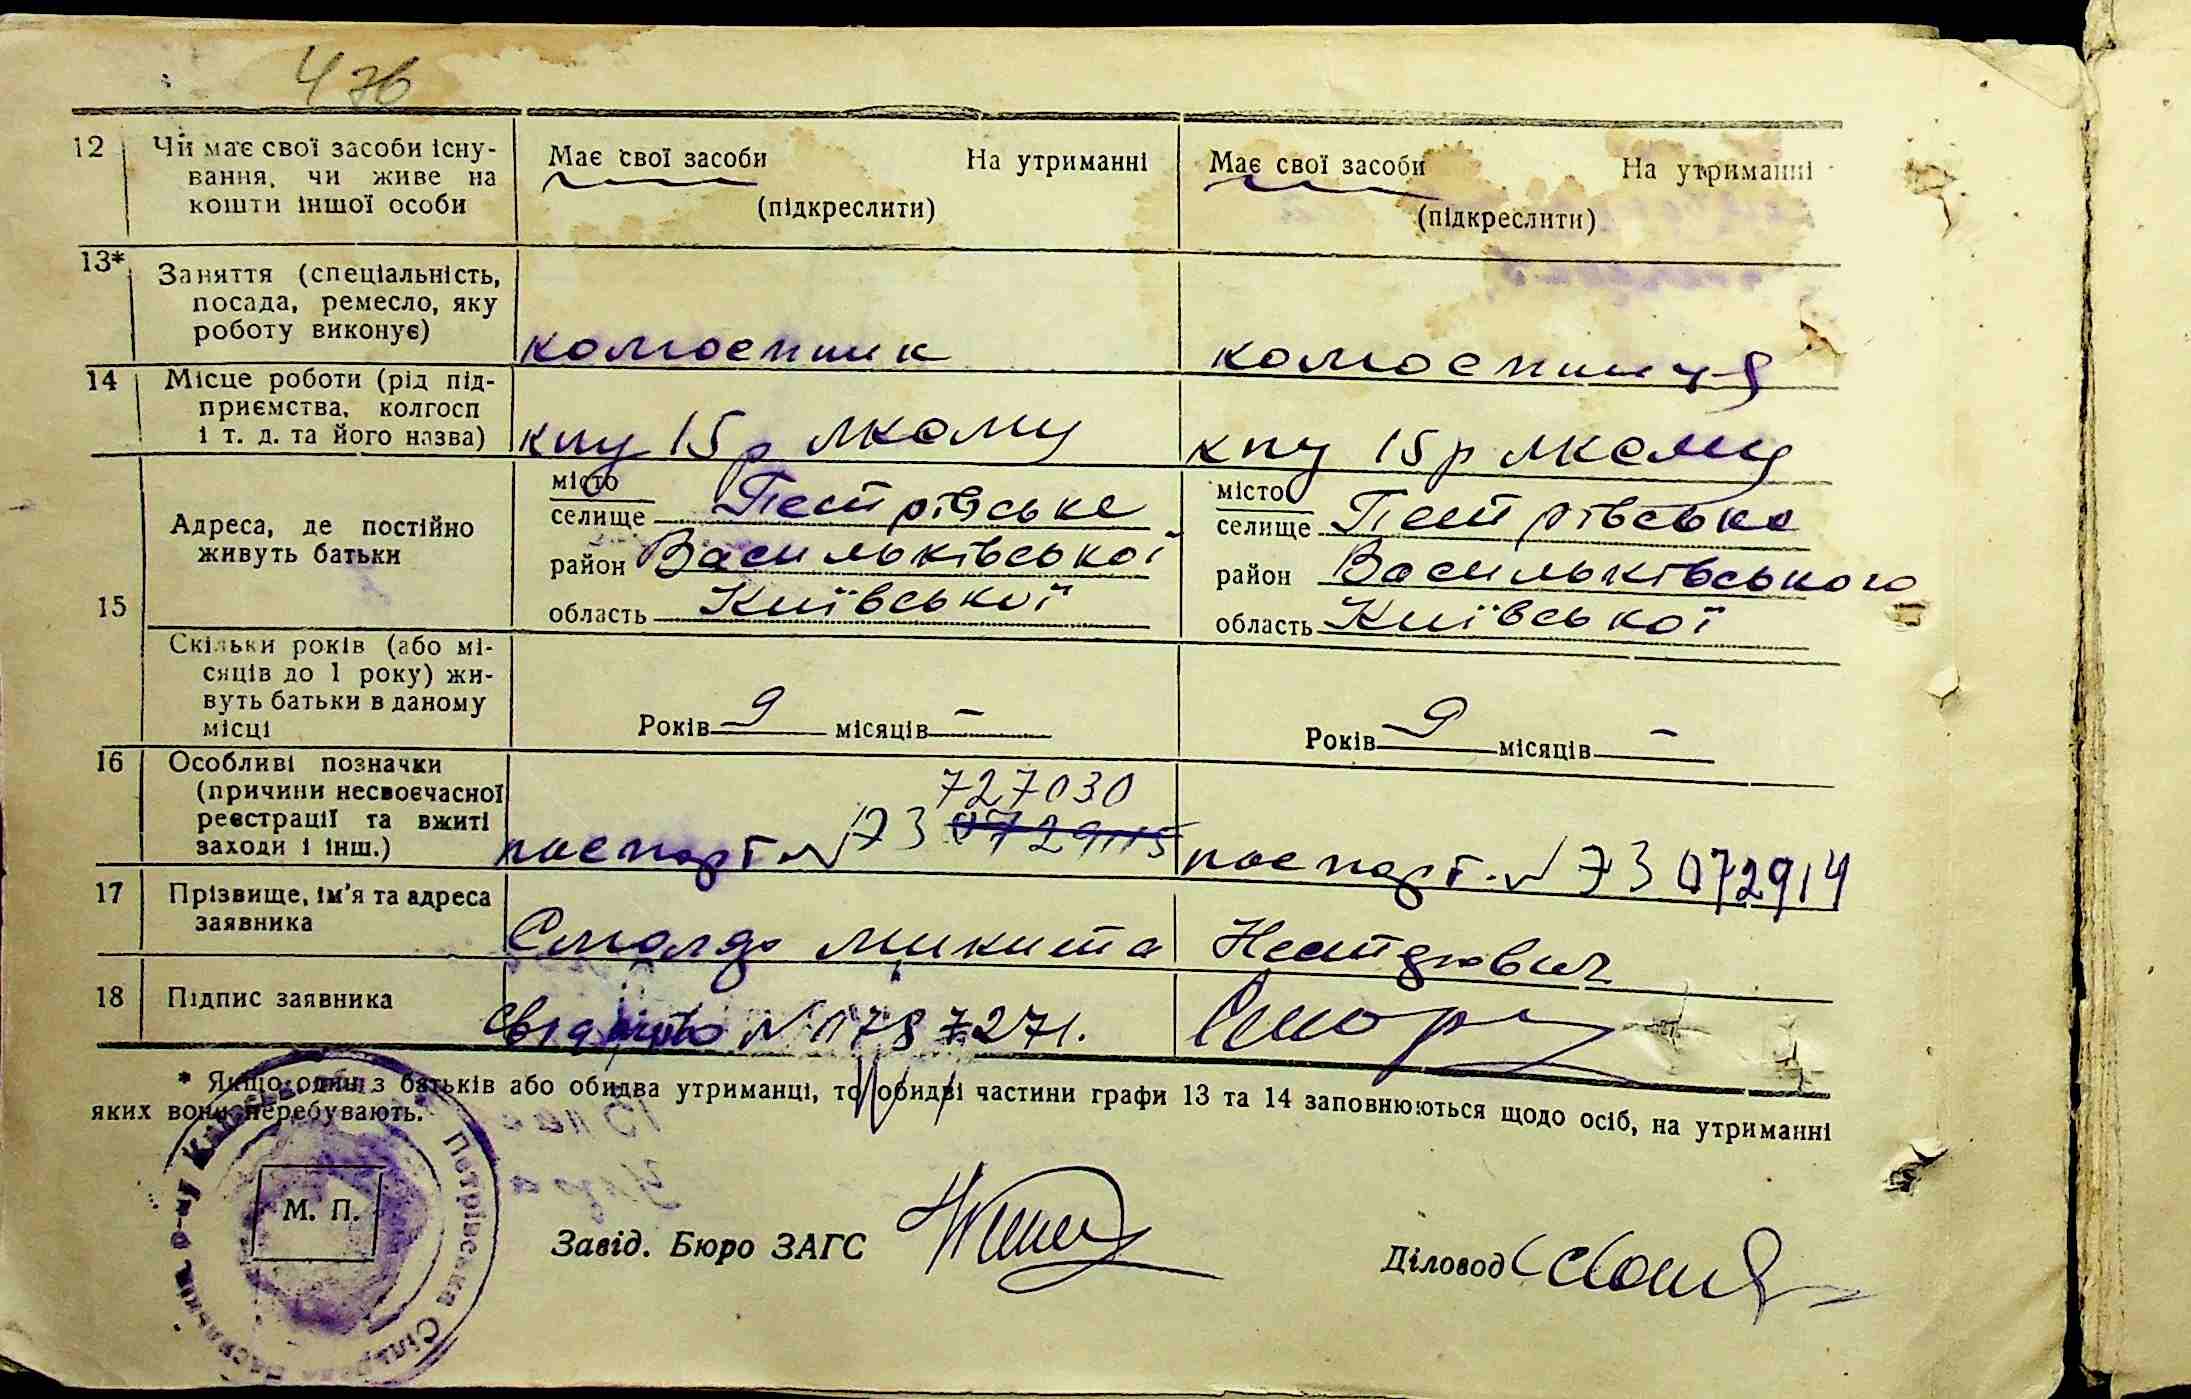 47б
12 Чи має свої засоби існу-
вання, чи живе на
кошти іншої особи
Має свої засоби На утриманні
(підкреслити)
Має свої засоби На утриманні
(підкреслити)
13* Заняття (спеціальність,
посада, ремесло, яку
роботу виконує)
колгоспник
колгоспниця
14 Місце роботи (рід під-
приємства, колгосп
і т. д. та його назва)
кпу 15 р лксму
кпу 15 р лксму
15 Адреса, де постійно
живуть батьки
місто
селище Петрівське
район Васильківської
область Київської
місто
селище Петрівське
район Васильківського
область Київської
Скільки років (або мі-
сяців до 1 року) жи-
вуть батьки в даному
місці
Років 9 місяців –
Років 9 місяців –
16 Особливі позначки
(причини несвоєчасної
реєстрації та вжиті
заходи і інш.)
727030
паспорт № 73 0729115
паспорт. № 73 072914
17 Прізвище, ім'я та адреса
заявника
микита
18 Підпис заявника
* Якщо один з батьків або обидва утриманці, то обидві частини графи 13 та 14 заповнюються щодо осіб, на утриманні
яких вони перебувають.
М. П.
Петрівська Сільрада
Завід. Бюро ЗАГС
Діловод